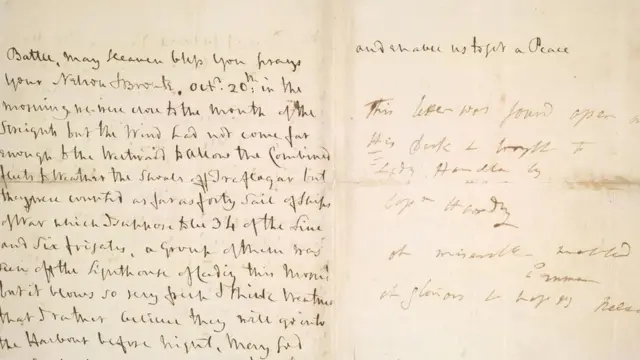 Battle, may Heaven bless you prays
your Nelson & Bronte, Octr. 20th: in the
morning we were close to the mouth of the
Streights but the Wind had not come far
enough to the Westward to allow the Combined
fleets to Weather the Shoals off Traflagar but
they were counted as far as forty Sail of Ships
of War which I suppose to be 34 of the Line
and Six frigates, a Group of them was
seen off the Lighthouse of Cadiz this Morng
but it blows so very fresh I think Weather
that I rather believe they will go into
the Harbour before night, May God
and enable us to get a Peace
This letter was found open on
His Desk & brought to
Lady Hamilton by
Capn Hardy
oh miserable wretched
Emma
oh glorious & happy Nelson